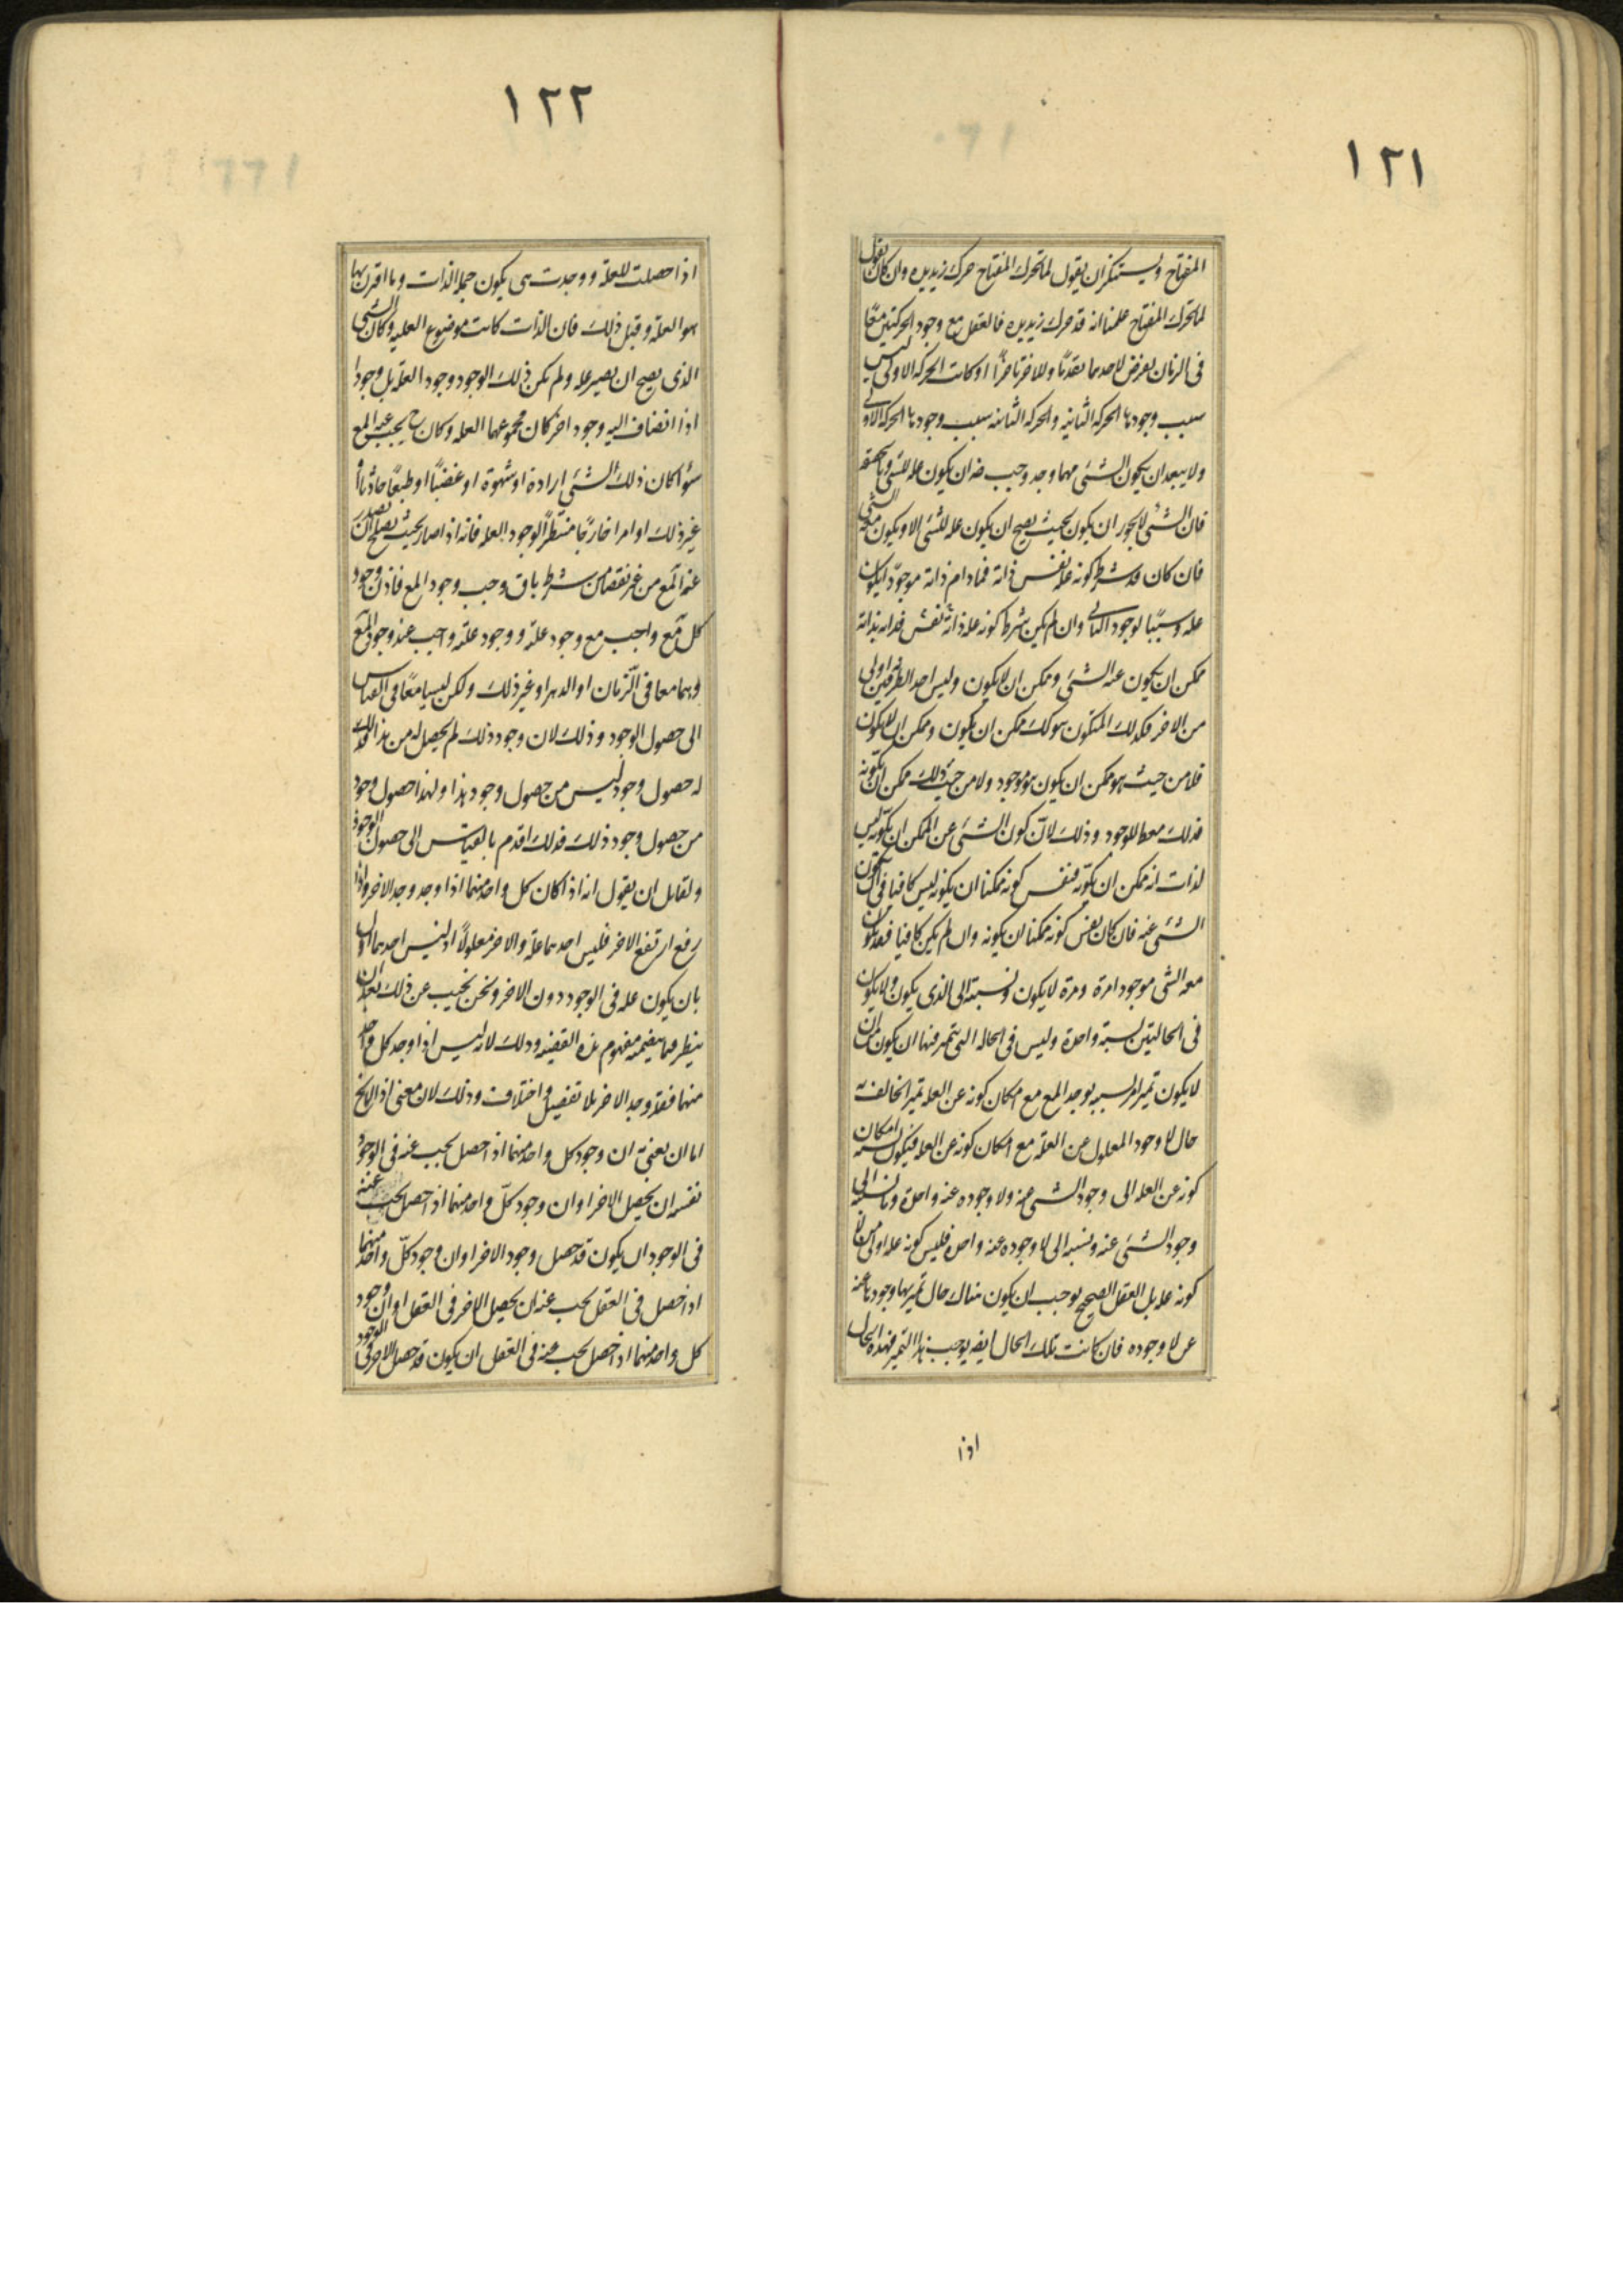 ١٢١
المفتاح ويستنكر ان يقول لما تحرك المفتاح حرك زيد يده وان كان يقول
لما تحرك المفتاح علمنا انه قد حرك زيد يده فالعقل مع وجود الحركتين معًا
فى الزمان يفرض لاحدهما تقدمًا وللاخر تاخرًا اذ كانت الحركه الاولى ليس
سبب وجودها الحركه الثانيه والحركه الثانيه سبب وجودها الحركه الاولى
ولا يبعد ان يكون الشئ مهما وجد وجب ضه ان يكون عله لشئ وبالحقيقه
فان الشئ لا يجوز ان يكون بحيث يصح ان يكون عله للشئ الا ويكون معه الشئ
فان كان قد شرط كونه عله نفس ذاته فمادام ذاته موجودًا يكون
عله وسببًا لوجود الثانى وان لم يكن شرط كونه عله ذاته نفس فذاته بذاته
ممكن ان يكون عنه الشئ وممكن ان لا يكون وليس احد الطرفين اولى
من الاخر فكذلك المتكون هو كك ممكن ان يكون وممكن ان لا يكون
فلا من حيث هو ممكن ان يكون هو موجود ولا من حيث ذلك ممكن ان يكونه
فذلك معط للوجود وذلك لان كون الشئ عن الممكن ان يكونه ليس
لذات انه ممكن ان يكونه فنفس كونه ممكنا ان يكونه ليس كافيا فى ان يكون
الشئ عنه فان كان نفس كونه ممكنا ان يكونه وان لم يكن كافيا فقد يكون
معه الشى موجودا مرة ومرة لا يكون ونسبته الى الذى يكون ولا يكون
فى الحالتين نسبة واحدة وليس فى الحاله التى تتميز فيها ان يكون من ان
لا يكون تميز امر بسببه يوجد المع مع امكان كونه عن العله تميزا يخالف به
حال لا وجود المعلول عن العلة مع امكان كونه عن العله فيكون نسبه امكان
كونه عن العله الى وجود الشى عنه ولا وجوده عنه واحدة وما نسبته الى
وجود الشئ عنه ونسبه الى لا وجوده عنه واحده فليس كونه عله اولى من لا
كونه عله بل العقل الصحيح يوجب ان يكون هناك حال تميز بها وجودها عنه
عن لا وجوده فان كانت تلك الحال ايضه يوجب هذا التميز فهذه الحال
اذا
١٢٢
اذا حصلت للعلة ووجدت هى يكون جملة الذات وما اقترن بها
هو العلة وقبل ذلك فان الذات كانت موضوع العليه وكان الشئ
الذى يصح ان يصير عله ولم يكن ذلك الوجود وجود العلة بل وجودا
اذا انضاف اليه وجود اخر كان مجموعهما العله وكان ح يجب عنه المع
سوا كان ذلك الشئ ارادة او شهوة او غضبًا او طبعًا حادثًا أ
غير ذلك او امرا خارجًا منتظرًا لوجود العله فانه اذا صار بحيث يصلح ان يصدر
عنه المع من غير نقصان شرط باق وجب وجود المع فاذن وجود
كل مع واجب مع وجود علة ووجود علة واجب عنه وجود المع
وهما معا فى الزمان او الدهر او غير ذلك ولكن ليسا معًا فى القياس
الى حصول الوجود وذلك لان وجود ذلك لم يحصل له من هذا فذلك
له حصول وجود ليس من حصول وجود هذا ولهذا حصول وجود
من حصول وجود ذلك فذلك اقدم بالقياس الى حصول الوجود
ولقايل ان يقول انه اذا كان كل واحد منهما اذا وجد وجد الاخر واذا
رفع ارتفع الاخر فليس احدهما علة والاخر معلولًا اذ ليس احدهما اولى
بان يكون عله فى الوجود دون الاخر ونحن نجيب عن ذلك بعد ان
ينظر فيما يتضمنه مفهوم هذه القضيه وذلك لانه ليس اذا وجد كل واحد
منهما فقد وجد الاخر بلا تفصيل واختلاف وذلك لان معنى اذا لا يخ
اما ان يعنى به ان وجود كل واحد منهما اذا حصل يجب عنه فى الوجود
نفسه ان يحصل الاخر او ان وجود كلّ واحد منهما اذا حصل يجب عنه
فى الوجود ان يكون قد حصل وجود الاخر او ان وجود كلّ واحد منهما
اذا حصل فى العقل يجب عنه ان يحصل الاخر فى العقل او ان وجود
كل واحد منهما اذا حصل يجب عنه فى العقل ان يكون قد حصل الاخر فى الوجود